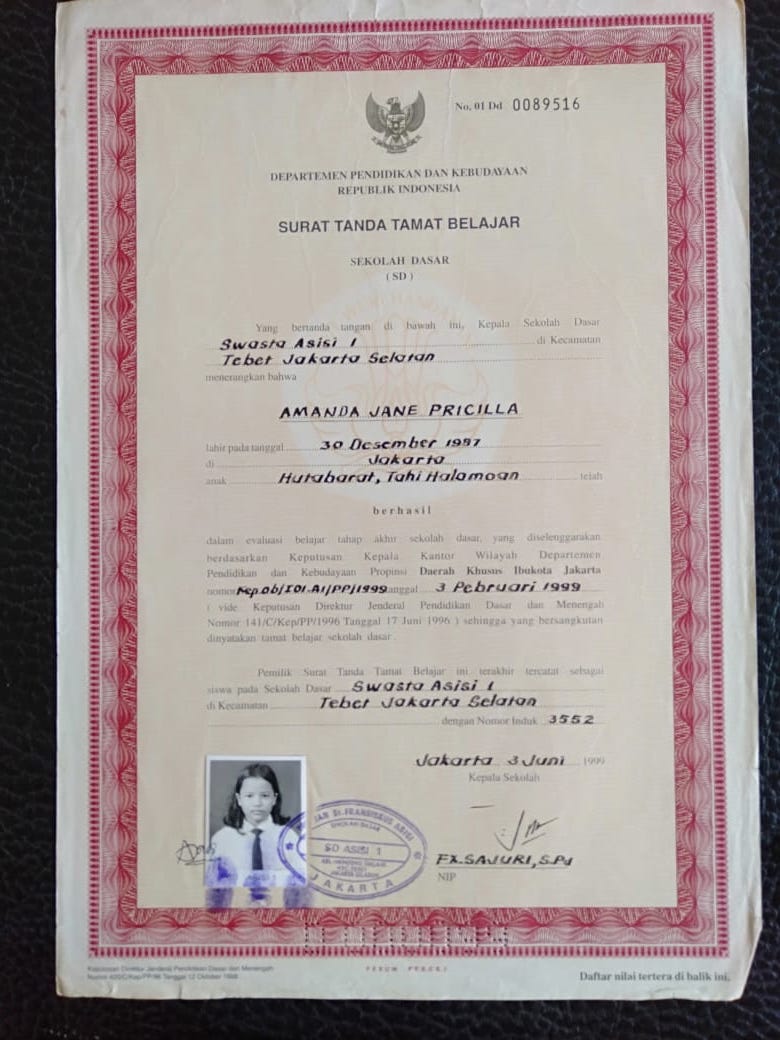 No. 01 Dd 0089516
DEPARTEMEN PENDIDIKAN DAN KEBUDAYAAN
REPUBLIK INDONESIA
SURAT TANDA TAMAT BELAJAR
SEKOLAH DASAR
( SD )
Yang bertanda tangan di bawah ini, Kepala Sekolah Dasar
Swasta Asisi 1 di Kecamatan
Tebet Jakarta Selatan
menerangkan bahwa
AMANDA JANE PRICILLA
lahir pada tanggal 30 Desember 1987
di Jakarta
anak Hutabarat, Tahi Halamoan telah
berhasil
dalam evaluasi belajar tahap akhir sekolah dasar, yang diselenggarakan
berdasarkan Keputusan Kepala Kantor Wilayah Departemen
Pendidikan dan Kebudayaan Propinsi Daerah Khusus Ibukota Jakarta
nomor Kep.06/I01.A1/PP/1999 tanggal 3 Pebruari 1999
( vide Keputusan Direktur Jenderal Pendidikan Dasar dan Menengah
Nomor 141/C/Kep/PP/1996 Tanggal 17 Juni 1996 ) sehingga yang bersangkutan
dinyatakan tamat belajar sekolah dasar.
Pemilik Surat Tanda Tamat Belajar ini terakhir tercatat sebagai
siswa pada Sekolah Dasar Swasta Asisi 1
di Kecamatan Tebet Jakarta Selatan
dengan Nomor Induk 3552
Jakarta 3 Juni 1999
Kepala Sekolah
St. FRANSISKUS ASISI
SEKOLAH DASAR
SD ASISI 1
JAKARTA SELATAN
JAKARTA
FX. SAJURI, S.Pd
NIP
Keputusan Direktur Jenderal Pendidikan Dasar dan Menengah
Tanggal 12 Oktober 1998
PERUM PERURI
Daftar nilai tertera di balik ini.